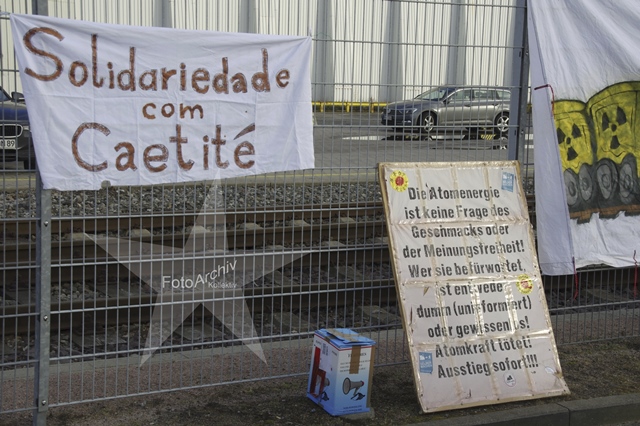 Solidariedade
com
Caetité
Die Atomenergie
ist keine Frage des
Geschmacks oder
der Meinungsfreiheit!
Wer sie befürwortet
ist entweder
dumm (uniformiert)
oder gewissenlos!
Atomkraft tötet!
Ausstieg sofort!!!
FotoArchiv
Kollektiv